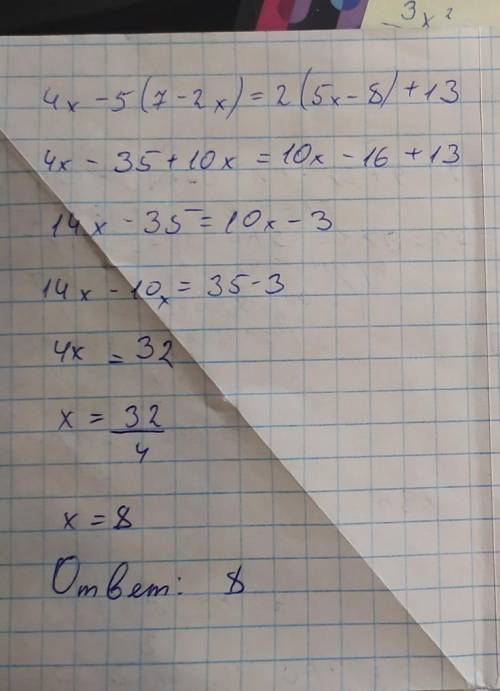 3x²
4x - 5(7 - 2x) = 2(5x - 8) + 13
4x - 35 + 10x = 10x - 16 + 13
14x - 35 = 10x - 3
14x - 10x = 35 - 3
4x = 32
x = 32/4
x = 8
Ответ: 8